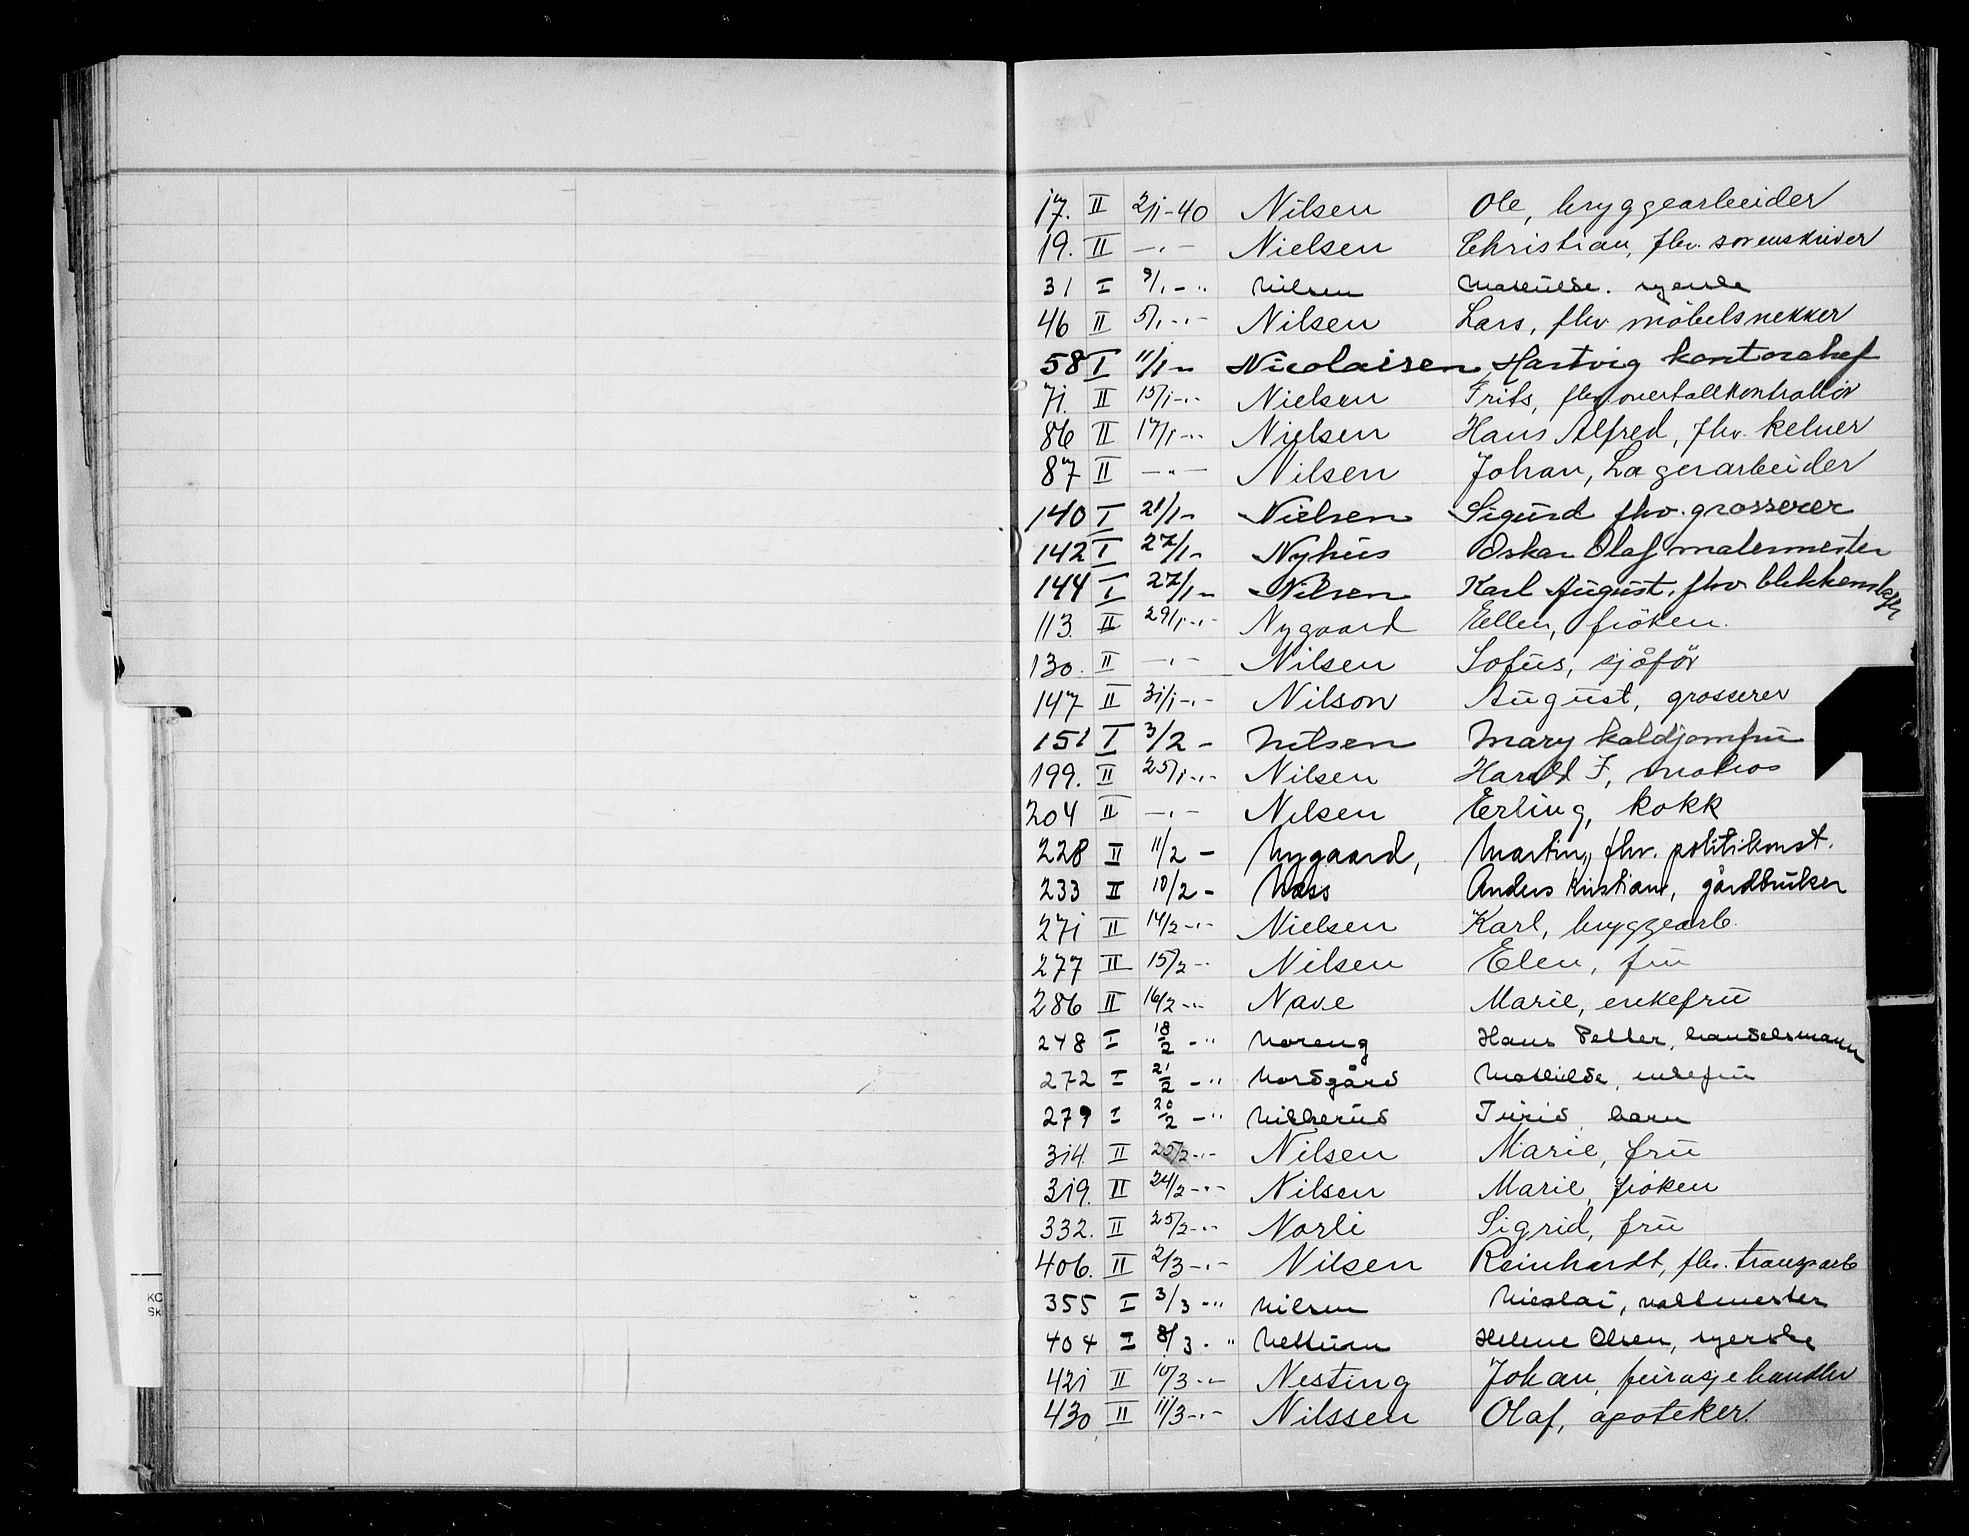 17. II 2/1-40 Nilsen Ole, bryggearbeider
19. II -"- Nielsen Christian, fhv. sorenskriver
31 I 9/1-" Nilsen Mathilde. syerske
46 II 5/1-"- Nilsen Lars, fhv møbelsnekker
58 I 11/1-" Nicolaisen, Hartvig kontorchef
71. II 15/1-"- Nielsen Frits, fhv. overtollkontrollør
86 II 17/1-"- Nielsen Hans Alfred, fhv. kelner
87 II -"- Nilsen Johan, Lagerarbeider
140 I 21/1- Nielsen Sigurd fhv. grosserer
142 I 27/1- Nyhus Oskar Olaf malermester
144 I 27/1-" Nilsen Karl August, fhv blikkenslager
113. II 29/1-"- Nygaard Ellen, frøken.
130. II -"- Nilsen Sofus, sjåfør
147 II 31/1-"- Nilson August, grosserer
151 I 3/2 - Nilsen Mary koldjomfru
199. II 25/1-"- Nilsen Harald F, matros
204 II -"- Nilsen Erling, kokk
228 II 11/2 - Nygaard, Martin, fhv. politikonst.
233 II 10/2 - Næss Anders Kristian, gårdbruker
271 II 14/2-"- Nielsen Karl, bryggearb.
277 II 15/2-"- Nilsen Elen, fru
286 II 16/2-"- Nave Marie, enkefru
248 I 18/2 -" Noreng Hans Petter, handelsmann
272 I 21/2 -" Nordgård Mathilde, enkefru
279 I 20/2 -" Nilherud Turid, barn
314. II 25/2-"- Nilsen Marie, fru
319. II 24/2-"- Nilsen Marie, frøken
332. II 25/2-"- Norli Sigrid, fru
406. II 2/3-"- Nilsen Reinhardt, fhv. transp.arb
355 I 3/3 -" Nilsen Nicolai, vaktmester
404 I 8/3 - " Nettum Helene Olsen, syerske
421 II 10/3 -"- Nesting Johan, furasjehandler
430 II 11/3-"- Nilssen Olaf, apoteker.